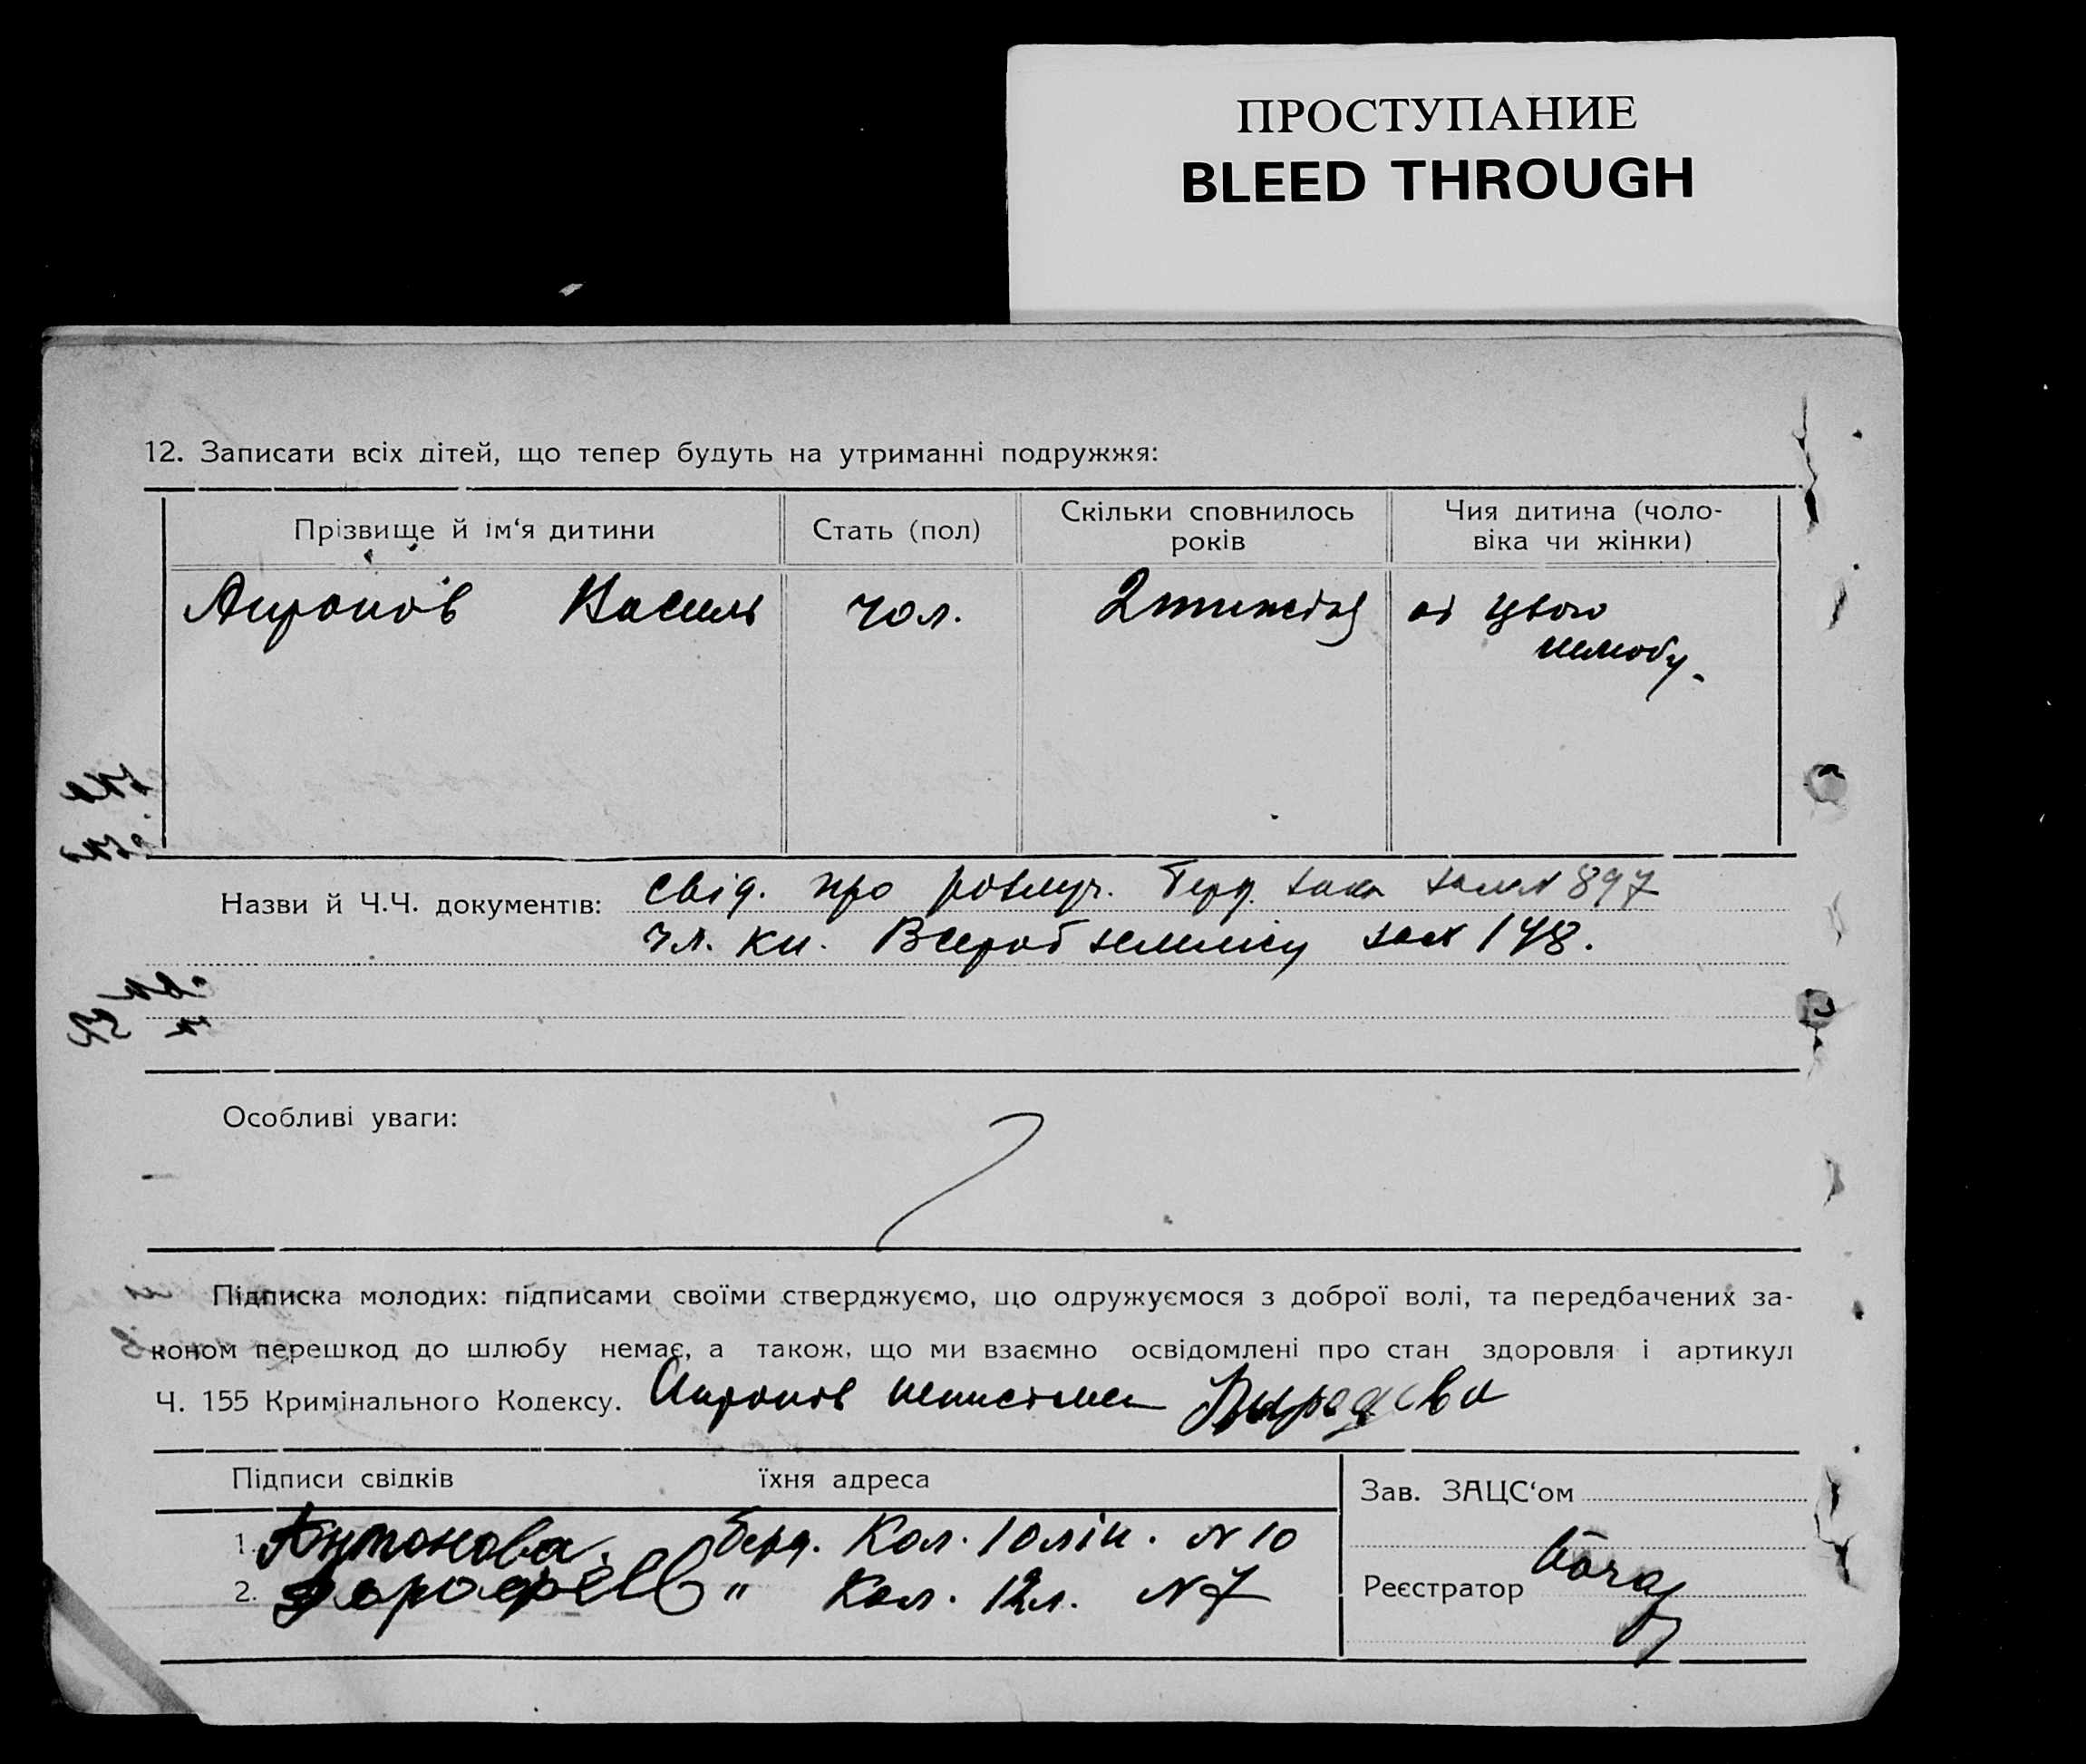 ПРОСТУПАНИЕ
BLEED THROUGH
12. Записати всіх дітей, що тепер будуть на утриманні подружжя:
Прізвище й ім‘я дитини
Стать (пол)
Скільки сповнилось
років
Чия дитина (чоло-
віка чи жінки)
Василь
чол.
2 тижні
від цього
шлюбу.
Назви й Ч.Ч. документів:
свід. про розлуч. Берд. загса за № 897
чл. кн. Всеробземлісу за № 148.
Особливі уваги:
Підписка молодих: підписами своїми стверджуємо, що одружуємося з доброї волі, та передбачених за-
коном перешкод до шлюбу немає, а також, що ми взаємно освідомлені про стан здоровля і артикул
Ч. 155 Кримінального Кодексу.
Підписи свідків
їхня адреса
Зав. ЗАЦС‘ом
1. Антонова. Берд. Кол. 10 лін. № 10
2. " Кол. 12 л. № 7
Реєстратор